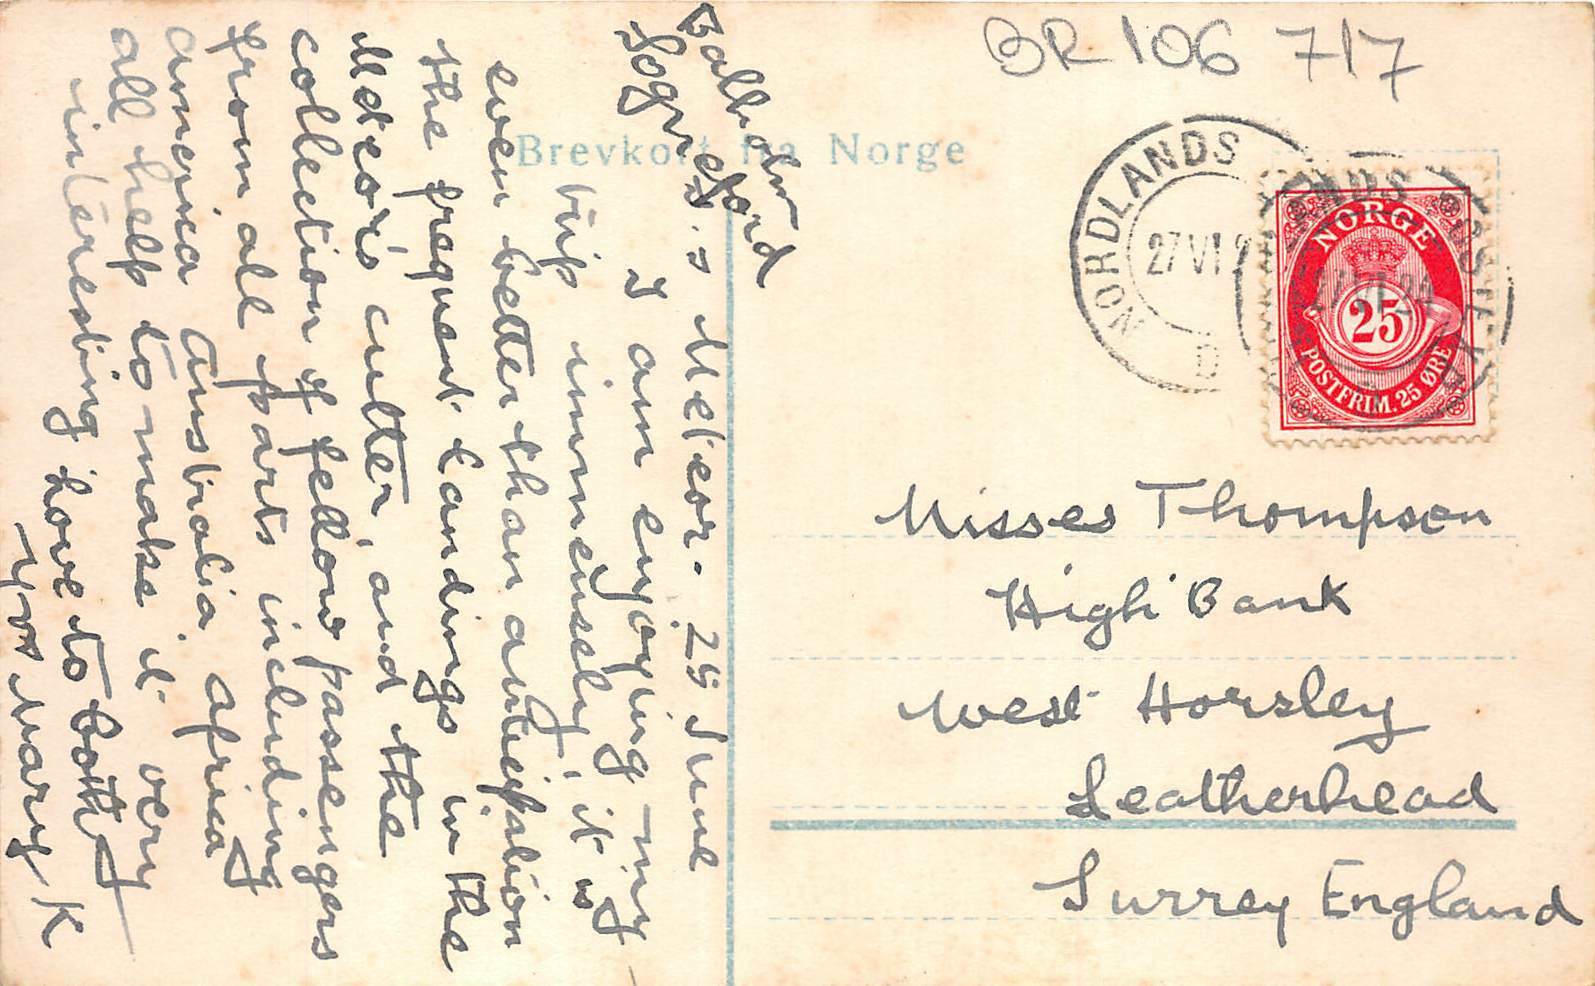 BR 106 717
Brevkort fra Norge
NORDLANDS
27 VI
NORGE
25
POSTFRIM. 25 ØRE
Balholm
Sognefjord
s.s Meteor. 25 June
I am enjoying my
trip immensely, it is
even better than anticipation
the frequent landings in the
Meteor's cutter, and the
collection of fellow passengers
from all parts including
america australia, africa
all help to make it very
interesting love to both
Yrs Mary K
Misses Thompson
High Bank
West Horsley
Leatherhead
Surrey England